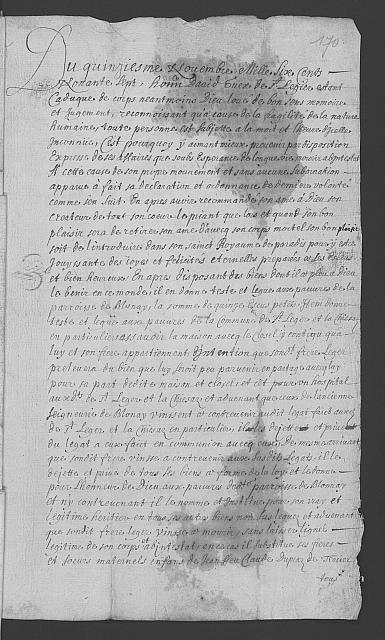 170.
Du quinziesme Novembre Mille Six Cents
Nonante Sept. honn. David de St. Legier estant
Caduque de corps neantmoins Dieu loué de bon sens memoire
et Jugement, reconnoissant qu'a cause de la fragilité de la nature
humaine, toute personne est subjette a la mort et l'heure d'icelle
Inconnue, C'est pourquoy y aimant mieux par disposition
Expresse de ses affaires que soubs Esperance de longue vie mourir abjntestat
A cette cause de son propre mouvement et sans aucune Subornation
apparue a fait sa declaration et ordonnance de derniere volonté
comme son Suit. En apres avoir recommandé son ame a Dieu son
Createur de tout son coeur le priant que lors et quand son bon
plaisir sera de retirer son ame D'avecq son corps mortel son bon plaisir
soit de l'introduire dans son sainct Royaume de paradis pour y estre
Jouyssante des Joyes et felicités eternelles preparées a
et bien heureux. En apres disposant des biens dont il a pleu a Dieu
le benir en ce monde, il en donne teste et legue aux pauvres de la
parroisse de Blonay, la somme de quinze Escus petits, Item donne
teste et legue aux pauvres de la Commune de St. Legier et la Chiesaz
en particulier assavoir la maison avecq le Closel y contigu qu'a
luy et son frere appartiennent d'Intention que sond. frere Legier
prelevera du bien que luy seroit peu parvenir en partage avecq luy
pour sa part de dite maison et closel et c'est pour un hospital
aux ds. de St. Legier et la Chiesaz et advenant que ceux de l'ancienne
Seigneurie de Blonay vinssent a contrevenir audit legat fait a ceux
de St. Legier et la Chiesaz en particulier, il les dejette et prive
du legat a eux fait en communion avecq ceux de mesme arrivant
que sondit frere vinsse a contrevenir aux susdits Legats, il le
dejette et prive de tous ses biens a forme de la loy et le donne
pour l'honneur de Dieu aux pauvres de dte. parroisse de Blonay
et n'y contrevenant il le nomme et Institue pour son vray et
legitime heritier en tous ses autres biens non sus leguez et advenant
que sondit frere Legier vinsse a mourir sans laisser lignée
legitime de son corps abjntestat, en ce cas il substitue ses freres
et soeurs maternels enfans de Jean feu Claude Dupraz de
tous